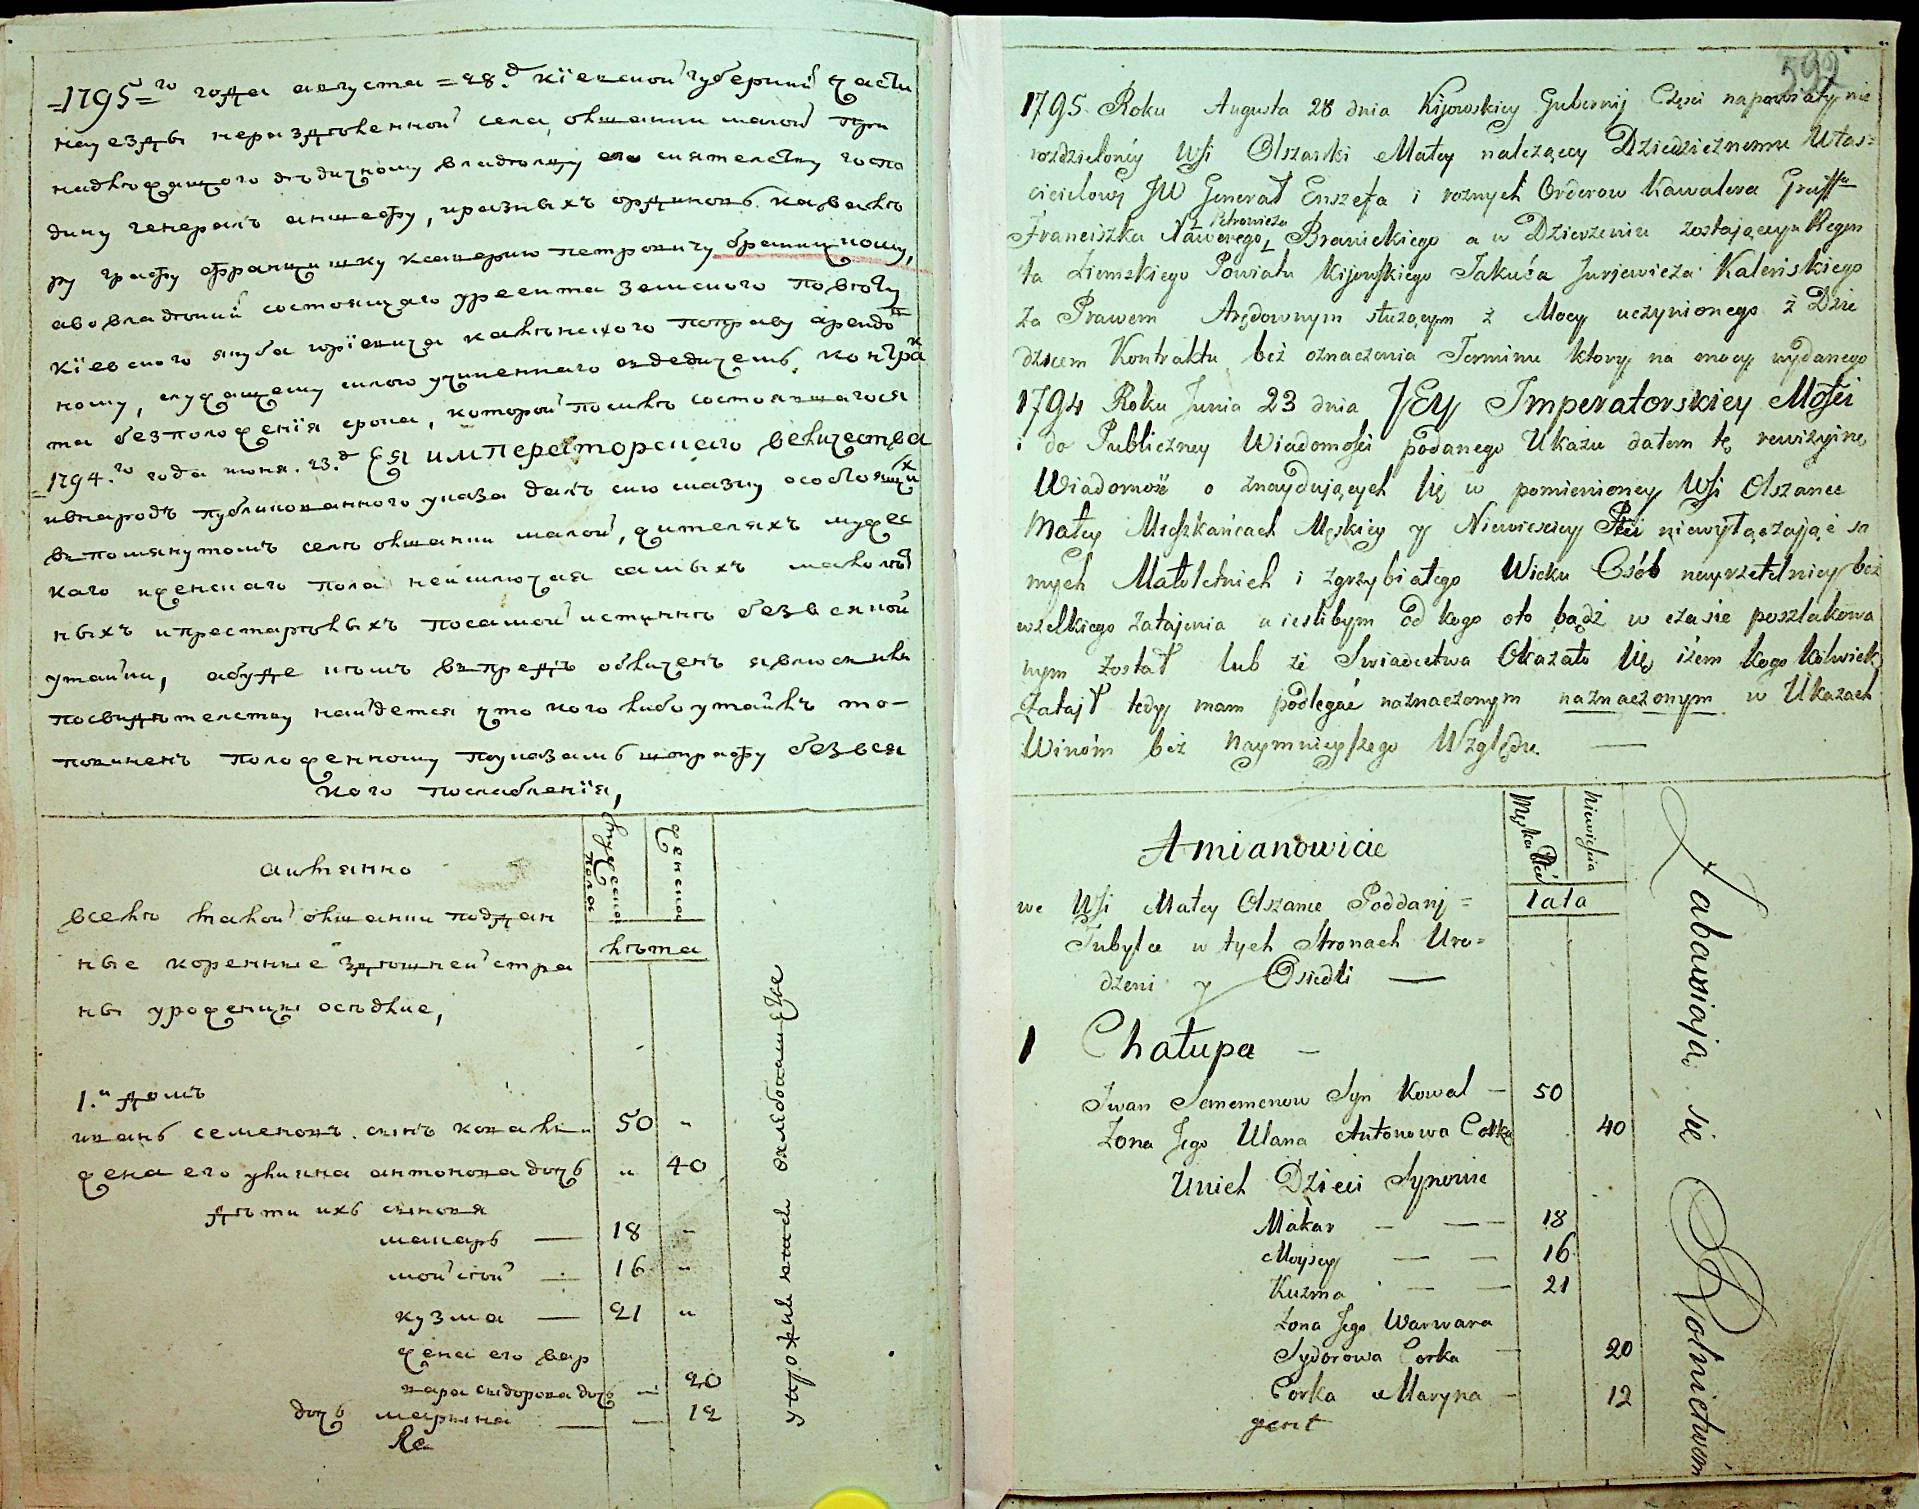 =1795=го года августа =28.д кїевской губернїи части
на уезды неразделенной села ольшанки малой при
надлежащого дедичному владелцу его сиятелству госпо
дину генералъ аншефу, и разныхъ ординовъ кавалѣ
ру графу францишку ксаверию петровичу браницкому,
а во владенїи состоящаго уреента земского повету
кїевского якуба юрїевича каленского по праву арендо
вному, служащему силою учиненнаго з дедичемъ контрак
та без положенїя срока, которой после состоявшагося
=1794.го года июня .23.д Ея императорскаго величества
и внародъ публикованного указа далъ сию сказку о состоящих
в помянутомъ селе ольшанки малой, жителяхъ мужес
каго и женскаго пола неисключая самыхъ малолѣт
ныхъ и престарѣлыхъ по самой истинне без всякой
утайки, а буде кемъ впредь обличенъ явлюсь или
по свидѣтелству найдется что кого либо утаилъ то-
повиненъ положенному по указамъ штрафу без вся
кого послабленїя,
мужеска пола
женска
лѣта
а именно
в селе малой ольшанки поддан
ные коренные здѣшней стра
ны уроженцы оседлие,
1.й домъ
иванъ семеновъ сынъ коваль 50 "
жена его улияна антонова дочь " 40
дѣти ихъ сыновя
макаръ — 18 "
мойсей — 16 "
кузма — 21 "
жена его вар
вара сидорова дочь — 20
дочь марина — — 12
упражняются хлебопашеством
592
1795 Roku Augusta 28 dnia Kijowskiey Gubernij Częsci napowiaty nie
rozdzieloney Wsi Olszanki Małey należącey Dziedzicznemu Włas=
cicielowi JW Generał Enszefa i roznych Orderow Kawalera Graffa
Franciszka Xawerego Petrowicza Branickiego a w Dzierzeniu zostającym Regen
ta Ziemskiego Powiatu Kijowskiego Jakuba Jurjewicza Kaleńskiego
za Prawem Arędownym służącym z Mocy uczynionego z Dzie
dzicem Kontraktu bez oznaczenia Terminu ktory na mocy wydanego
1794 Roku Junia 23 dnia JEy Imperatorskiey Mości
i do Publiczney Wiadomości podanego Ukazu dałem tę rewizyiną
Wiadomość o znaydujących się w pomienioney Wsi Olszance
Małey Mieszkańcach Męskiey y Niewiesciey Płci niewyłączając sa
mych Małoletnich i zgrzybiałego Wieku Osób nayrzetelniey bez
wszelkiego zatajenia a ieslibym od kogo oto bądź w czasie poszlakowa
nym został lub ze Swiadectwa Okazało się iżem kogo kolwiek
Zataił tedy mam podlegać naznaczonym naznaczonym w Ukazach
Winóm bez naymnieyszego Względu. —
Męska Płeć
Niewiescia
Lata
Amianowicie
we Wsi Małey Olszance Poddani =
Tubylce w tych Stronach Uro=
dzeni y Osiedli —
1 Chałupa —
Iwan Sememenow Syn Kowal — 50
Zona Jego Ulana Antonowa Corka 40
Unich Dzieci Synowie
Makar — — 18
Moysey — — 16
Kuzma — — 21
Zona Jego Warwara
Sydorowa Corka — 20
Corka Maryna — 12
Zabawiają się Rolnictwem